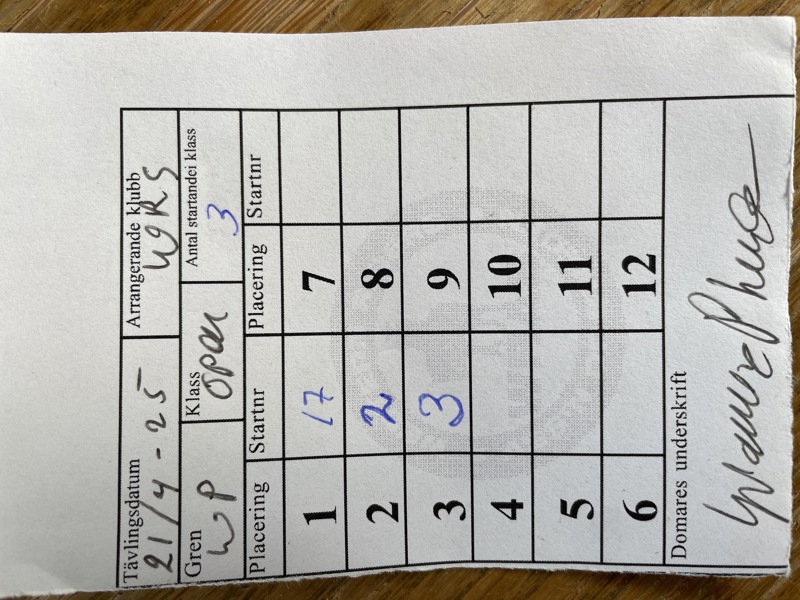 Tävlingsdatum Arrangerande klubb
21/4-25 WRS
Gren Klass Antal startandei klass
WP open 3
Placering Startnr Placering Startnr
1 17 7
2 2 8
3 3 9
4 10
5 11
6 12
Domares underskrift